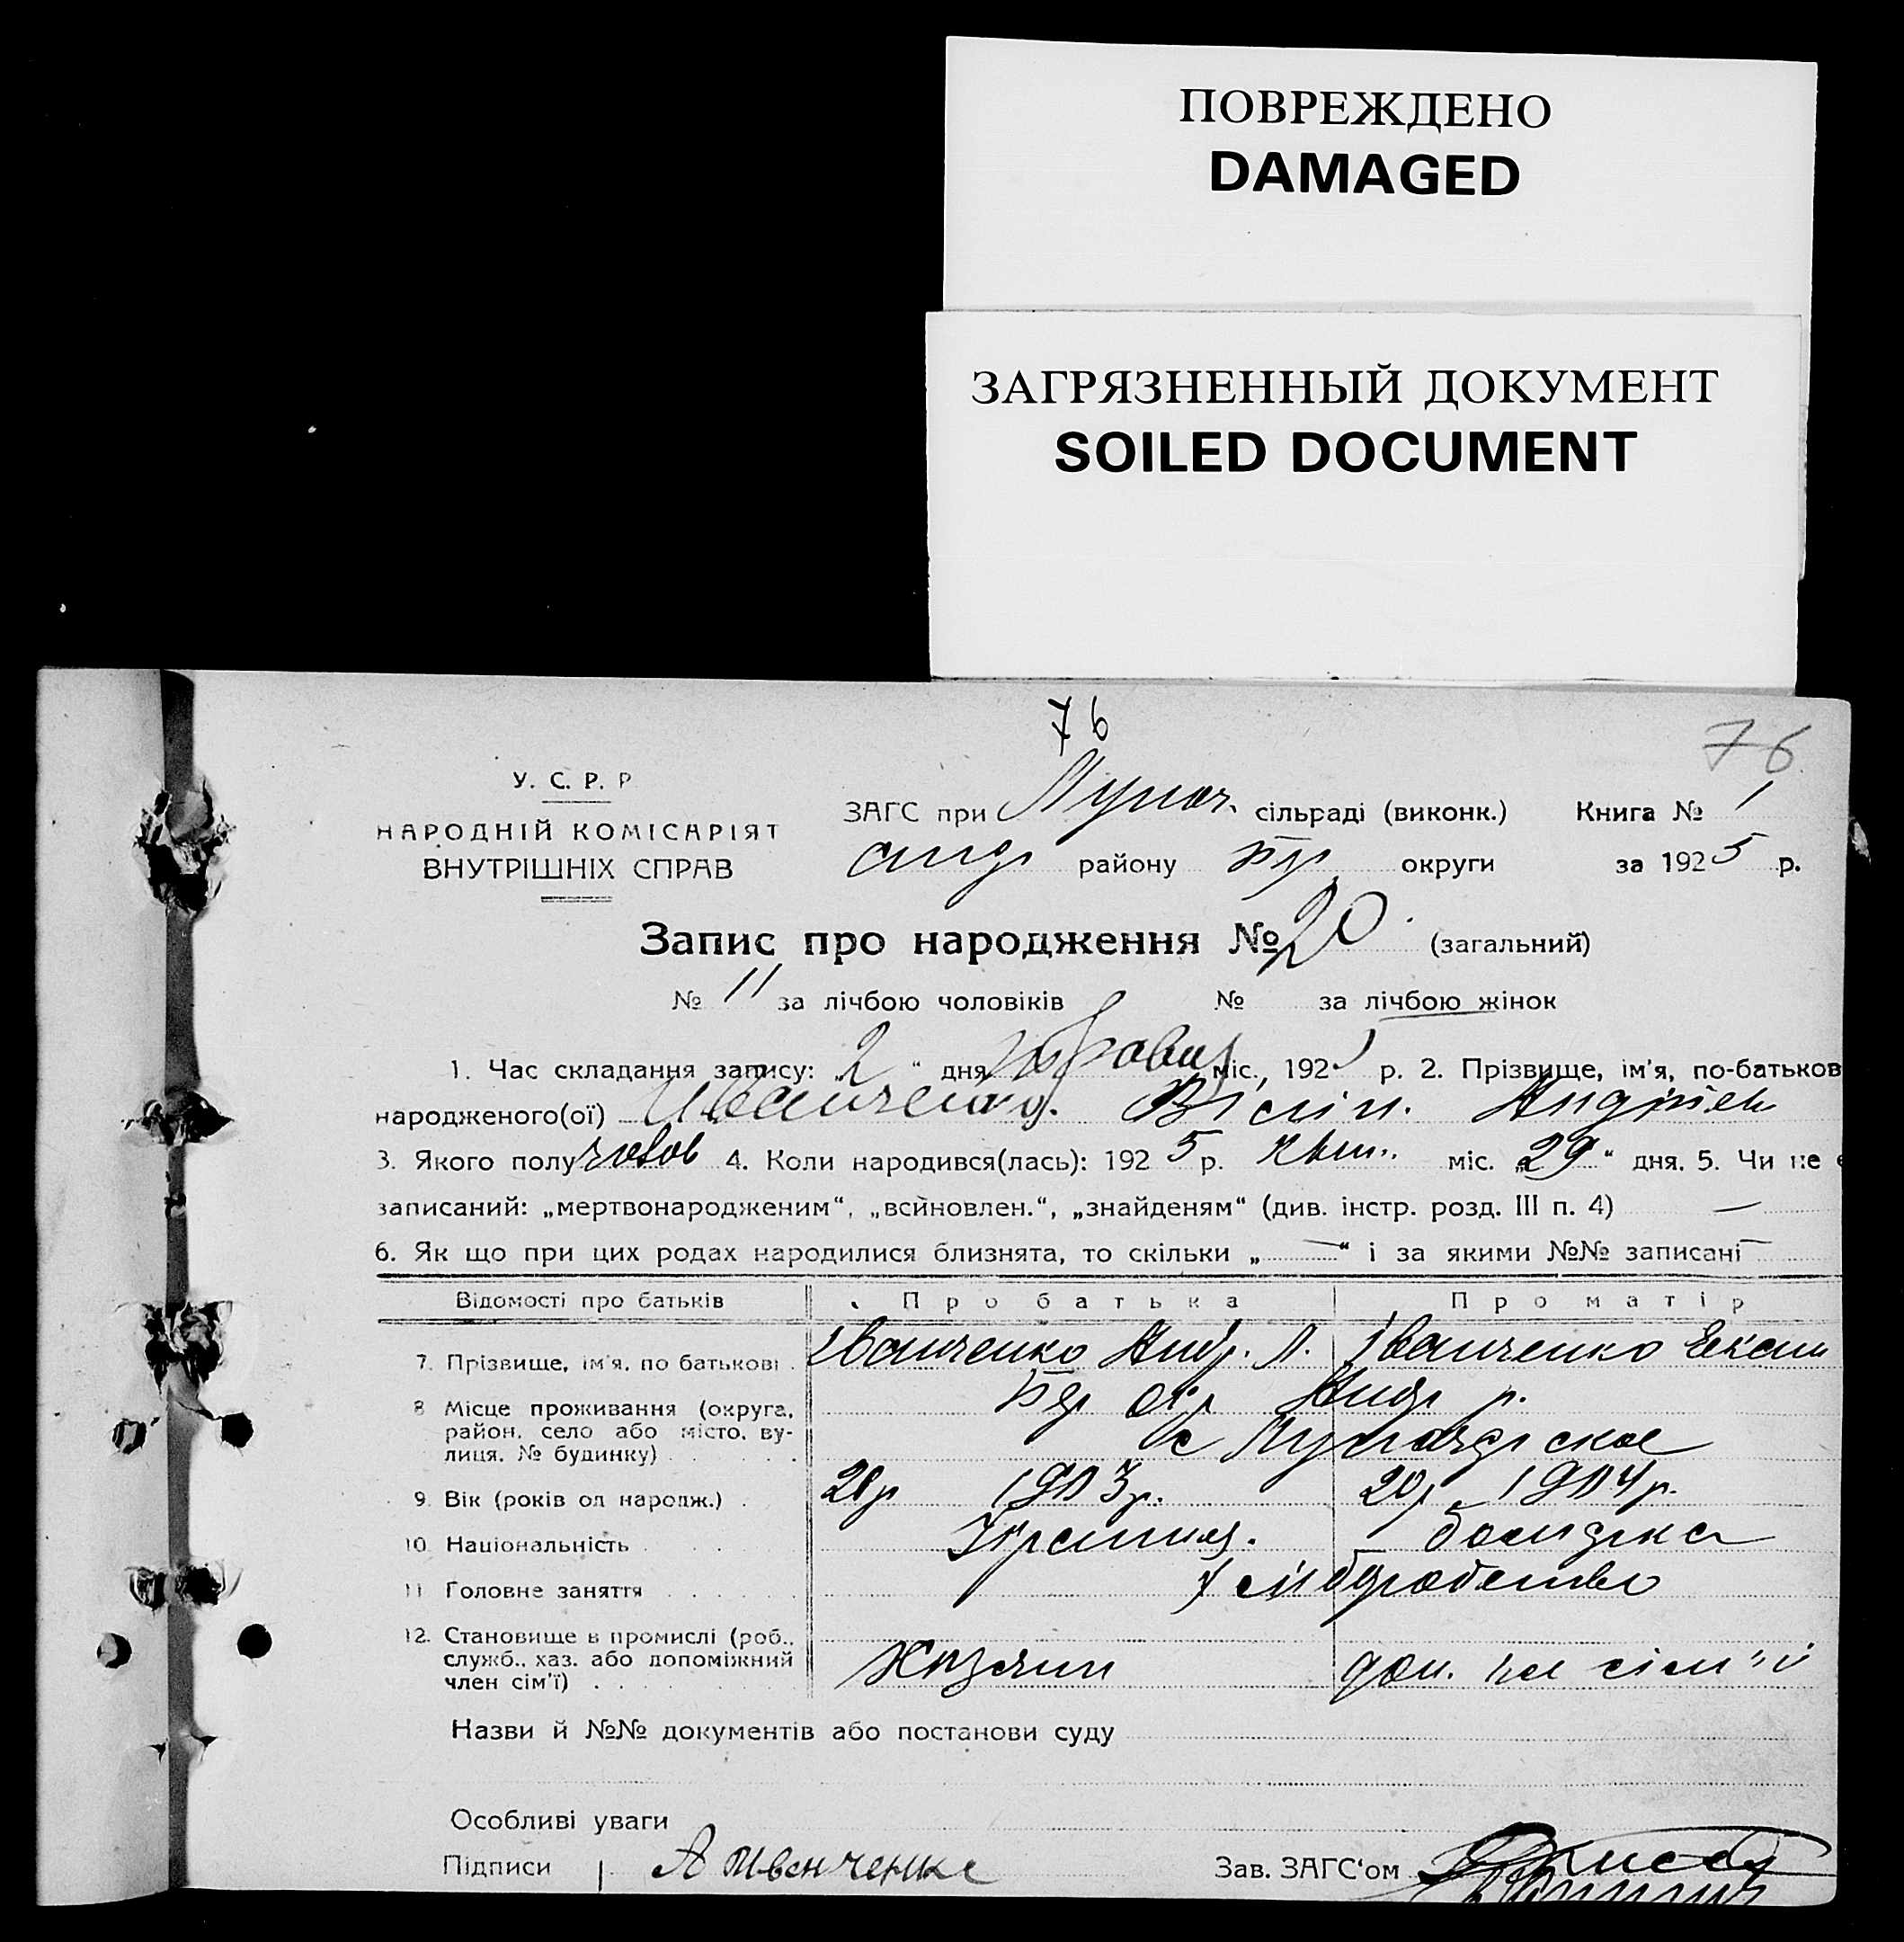 ПОВРЕЖДЕНО
DAMAGED
ЗАГРЯЗНЕННЫЙ ДОКУМЕНТ
SOILED DOCUMENT
76
76
У. С. Р. Р
НАРОДНІЙ КОМІСАРІЯТ
ВНУТРІШНІХ СПРАВ
ЗАГС при сільраді (виконк.) Книга № 1
району округи за 1925 р.
Запис про народження № 20 (загальний)
№ 11 за лічбою чоловіків № за лічбою жінок
1. Час складання запису: „2“ дня травня міс., 1925 р. 2. Прізвище, ім'я, по-батьков
народженого(ої) Иванченко.
3. Якого полу чолов 4. Коли народився(лась): 1925 р. квіт. міс. „29“ дня. 5. Чи не є
записаний: „мертвонародженим“, „всйновлен.“, „знайденям“ (див. інстр. розд. III п. 4) —
6. Як що при цих родах народилися близнята, то скільки „—“ і за якими №№ записані —
Відомості про батьків Про батька Про матір
7. Прізвище, ім'я, по батькові . Іванченко Андр. Л. Іванченко
8 Місце проживання (округа, район, село або місто, вулиця, № будинку) Бер окр Андр р.
с
9. Вік (років од народж.) . 1903р. 20р 1904р.
10. Національність
11 Головне заняття
12. Становище в промислі (роб., служб., хаз. або допоміжний член сім'ї) Хазяин доп. чл сім'ї
Назви й №№ документів або постанови суду
Особливі уваги
Підписи А Иванченко Зав. ЗАГС'ом